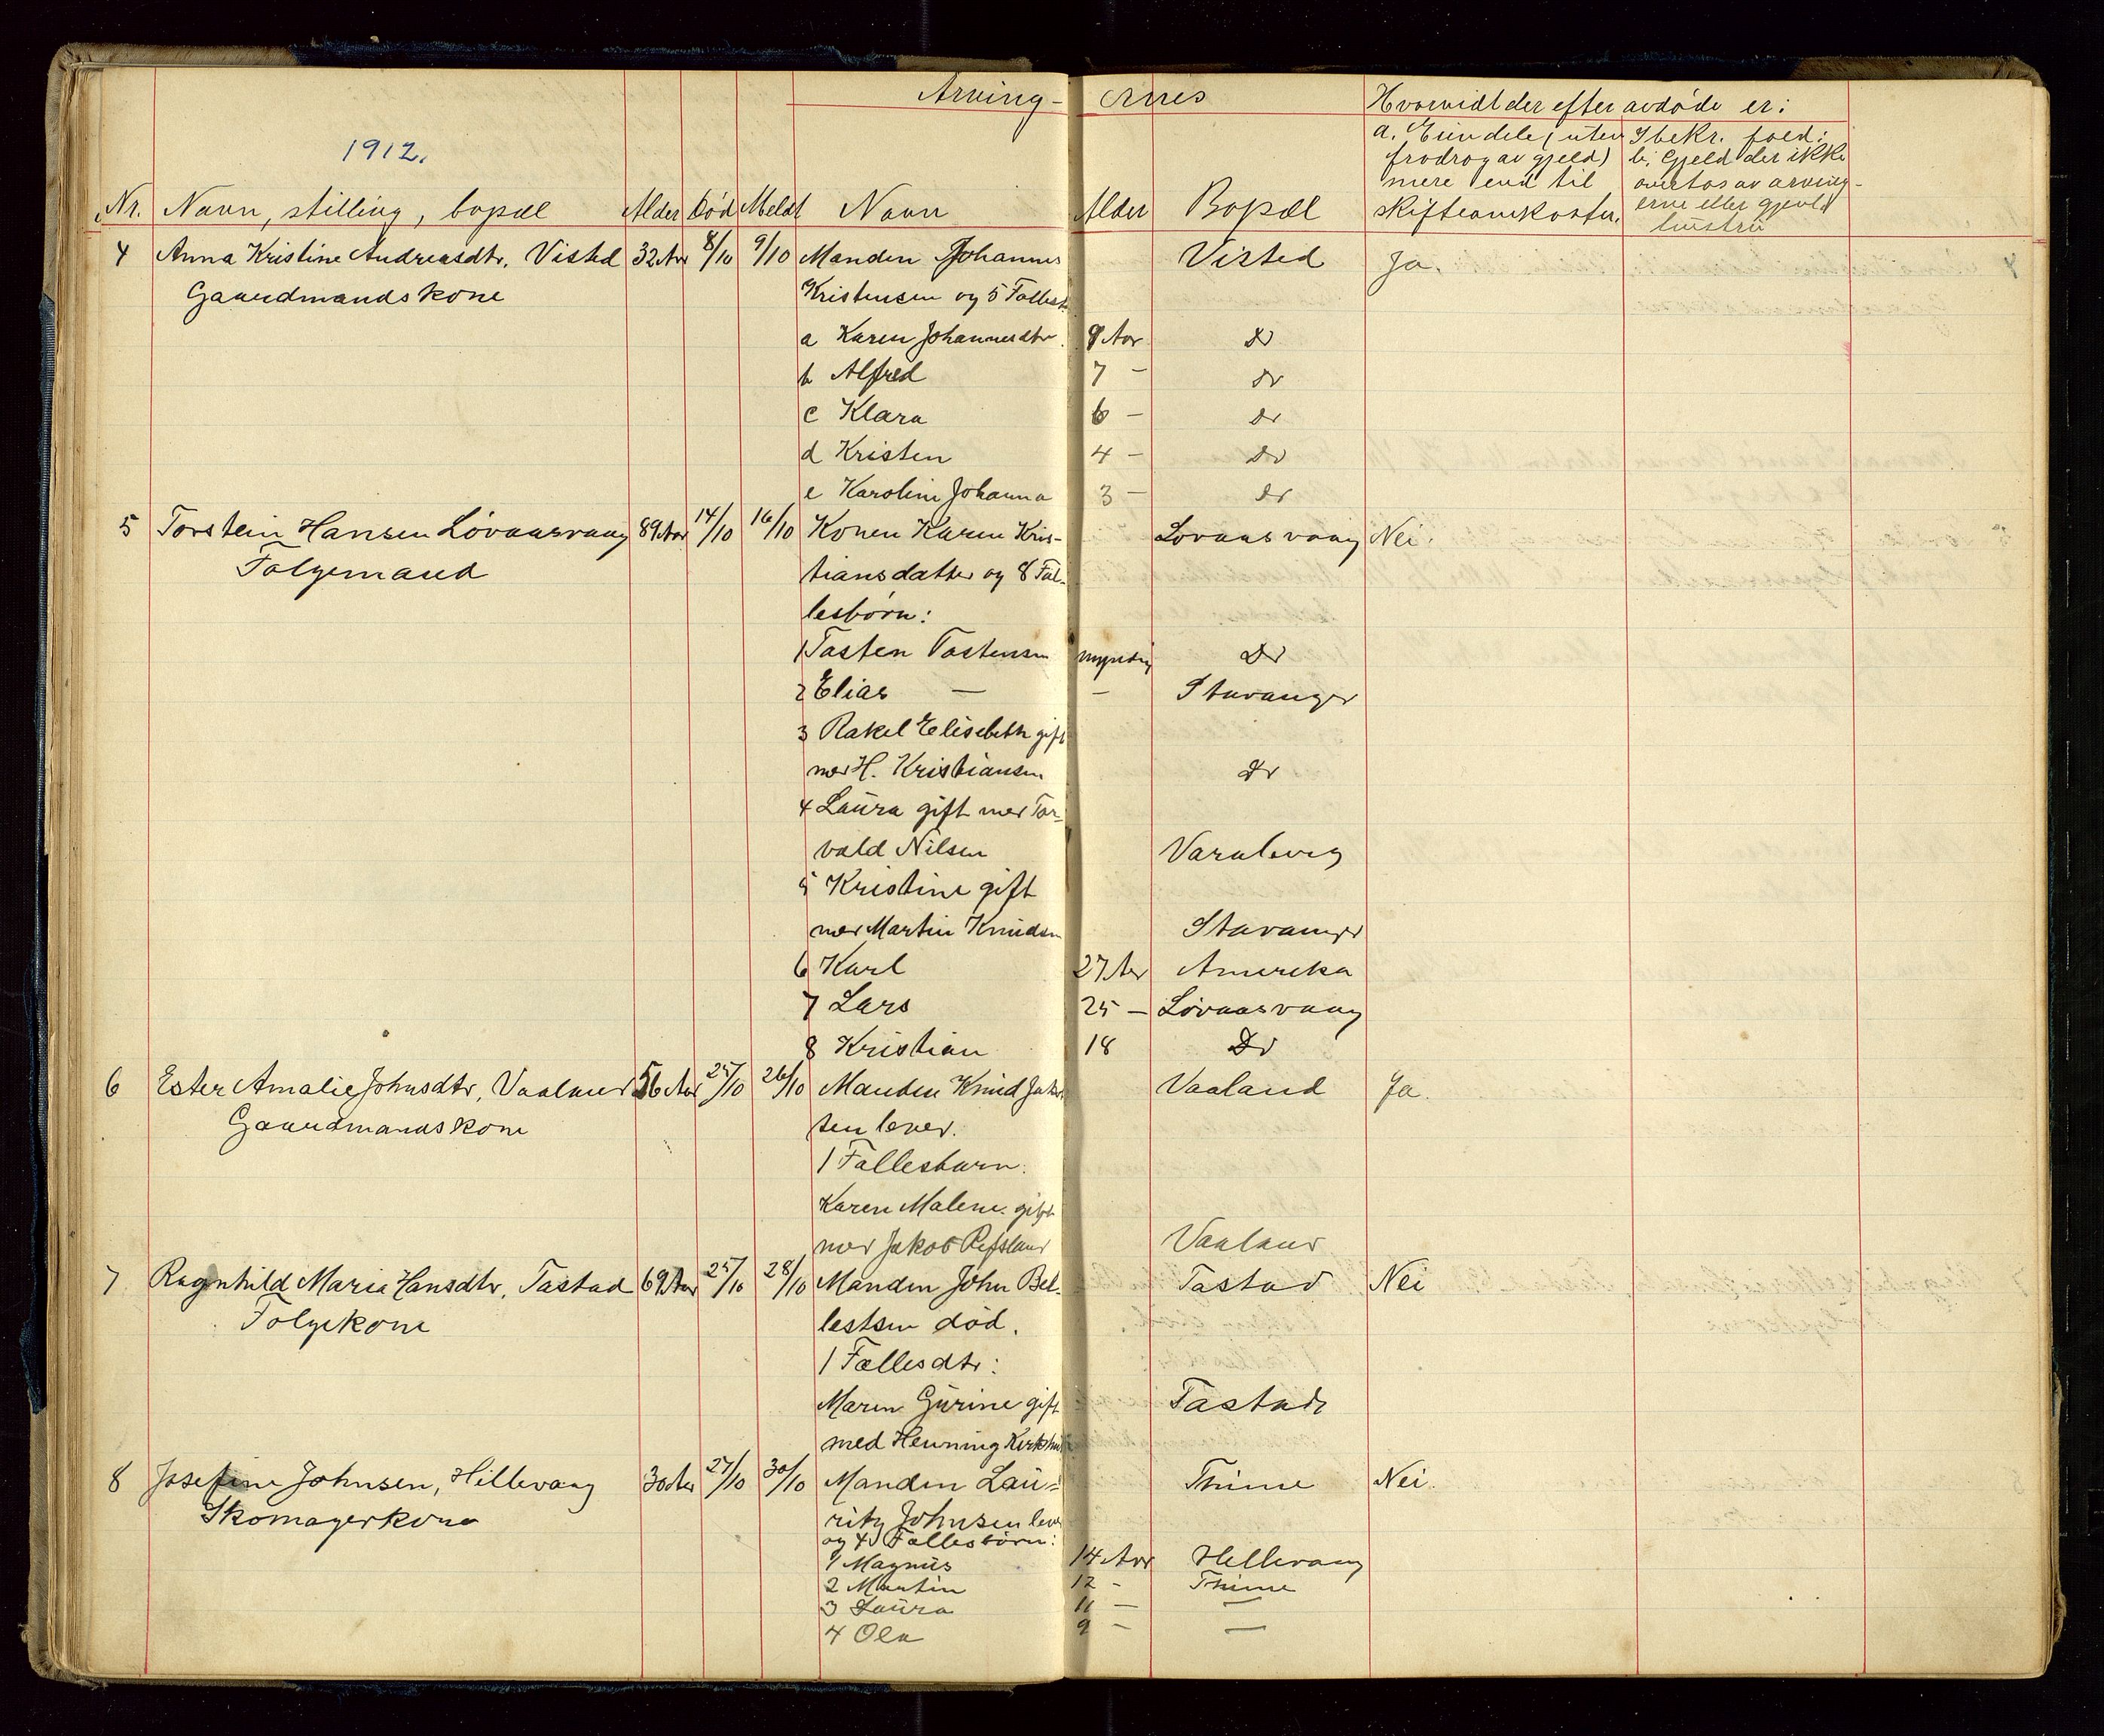 Arving- ernes
Hvorvidt der efter avdøde er:
1912.
a. Eiendele (uten
fradrag av gjeld)
mere end til
skifteomkostn.
I bekr. fald:
b. Gjeld der ikke
overtas av arving-
erne eller gjenld
Nr. Navn, stilling, bopæl Alder Død Meldt Navn Alder Bopæl
4 Anna Kristine Andreasdtr. Visted 32 Aar 8/10 9/10 Manden Johannes Visted Ja.
Gaardmandskone Kristensen og 5 Fællesb
a Karen Johannesdtr. 8 Aar do
b Alfred 7 - do
c Klara 6 - do
d Kristen 4 - do
e Karoline Johanna 3 - do
5 Torstein Hansen Løvaasvaag 89 Aar 14/10 16/10 Konen Karen Kris- Løvaasvaag Nei.
Følgemand tiansdatter og 8 Fæl-
lesbörn:
1 Tosten Tostensen myndig Do
2 Elias — - Stavanger
3 Rakel Elisebeth gift
med H. Kristiansen Do
4 Laura gift med Tor-
vald Nilsen Varaberg
5 Kristine gift
med Martin Knudsen Stavanger
6 Karl 27 Aar Amerika
7 Lars 25 — Løvaasvaag
8 Kristian 18 Do
6 Ester Amalie Johnsdtr, Vaaland 56 Aar 25/10 26/10 Manden Knud Jakob Vaaland Ja.
Gaardmandskone sen lever.
1 Fællesbarn.
Karen Malene gift
med Jakob Refsland Vaaland
7 Ragnhild Maria Hansdtr, Tastad 69 Aar 25/10 28/10 Manden John Bel- Tastad Nei
Følgekone lestsen död.
1 Fællesdtr:
Maren Gurine gift Tastad
med Henning
8 Josefine Johnsen, Hillevaag 30 Aar 27/10 30/10 Manden Lau= Thime Nei.
Skomagerkone ritz Johnsen lever
og 4 Fællesbörn:
1 Magnus 14 Aar Hillevaag
2 Martin 12 - Thime
3 Laura 11 — —
4 Ola 9 — —